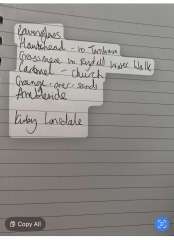 Hawkshead - 
Grassmere to Rydall Water Walk
Cartmel - church
Grange-over-sands
Ambleside
Kirby Lonsdale
Copy All